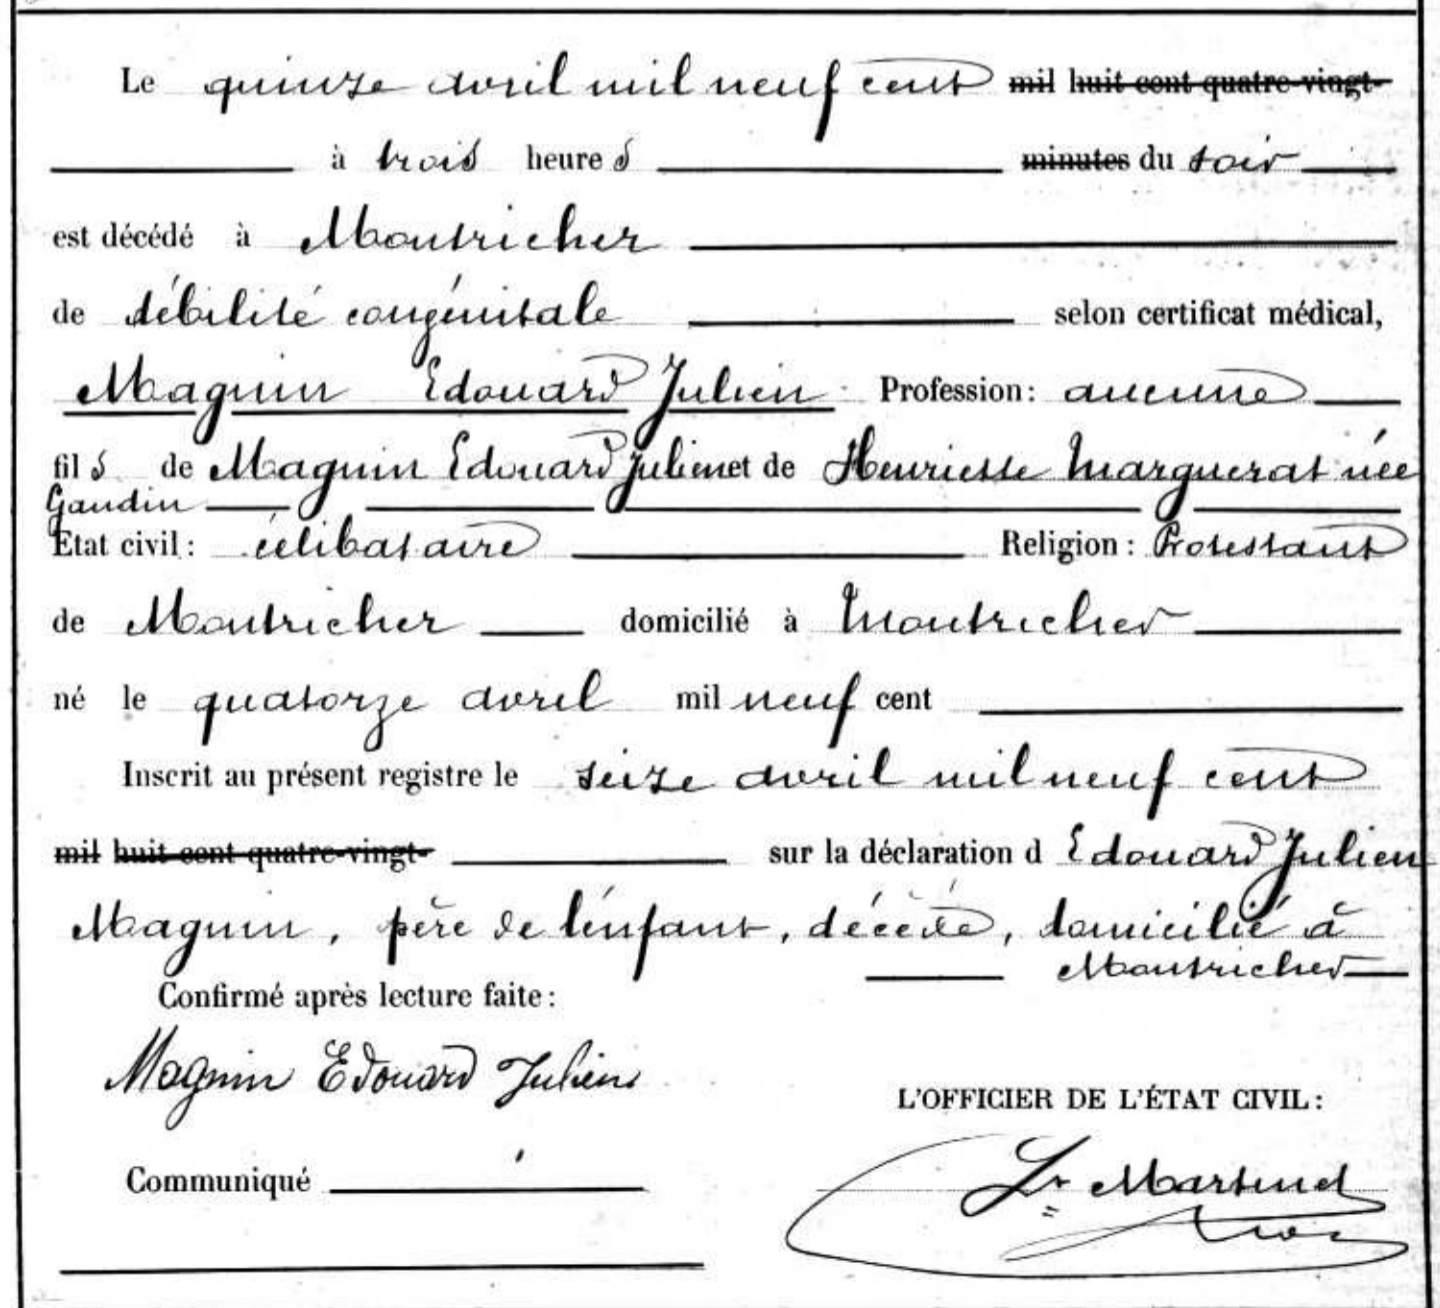 Le quinze avril mil neuf cent mil huit cent quatre-vingt-
à trois heures minutes du soir
est décédé à Montricher
de débilité congénitale selon certificat médical,
Magnin Edouard Julien Profession: aucune
fils de Magnin Edouard Julien et de Henriette Marguerat née
Gaudin
Etat civil: célibataire Religion: Protestant
de Montricher domicilié à Montricher
né le quatorze avril mil neuf cent
Inscrit au présent registre le seize avril mil neuf cent
mil huit cent quatre-vingt- sur la déclaration d Edouard Julien
Magnin, père de l'enfant, décédé, domicilié à
Montricher
Confirmé après lecture faite:
Magnin Edouard Julien
L'OFFICIER DE L'ÉTAT CIVIL:
Communiqué
Ls Martinet